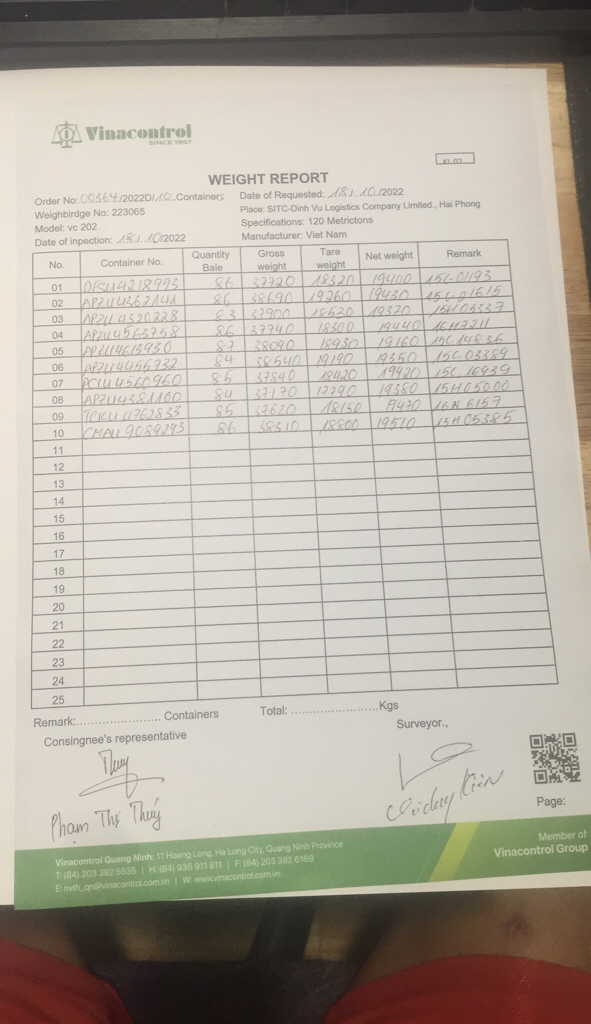 Vinacontrol
SINCE 1957
KL 02
WEIGHT REPORT
Order No: 00364/2022D/10 Containers Date of Requested: 18/10/2022
Weighbirdge No: 223065 Place: SITC-Dinh Vu Logistics Company Limited., Hai Phong
Model: vc 202 Specifications: 120 Metrictons
Date of inpection: 18/10/2022 Manufacturer: Viet Nam
No. Container No. Quantity Bale Gross weight Tare weight Net weight Remark
01 86 37720 18320 19400 15C-01193
02 86 38690 19260 19430
03 83 37900 18530 19370 15H05537
04 APZU4563758 86 37740 18300 19440 16H7211
05 APZU4613930 87 38090 18930 19160 15C14836
06 APZU4055732 84 38540 19190 19350 15C 03389
07 PCIU4560960 85 37840 18420 19420 15C 16939
08 APZU4381100 84 37170 17790 19380 15H05000
09 TCKU4762833 85 37620 18150 19470 16N 6157
10 CMAU9089293 86 38310 18800 19510 15H 05385
11
12
13
14
15
16
17
18
19
20
21
22
23
24
25
Remark:...................... Containers Total: ..........................Kgs
Consingnee's representative Surveyor.,
Thuy
Phạm Thị Thúy
Page:
Vinacontrol Quang Ninh: 11 Hoang Long, Ha Long City, Quang Ninh Province
T: (84) 203 382 5535 | H: (84) 936 911 811 | F: (84) 203 382 6169
E: nvth_qn@vinacontrol.com.vn | W: www.vinacontrol.com.vn
Member of
Vinacontrol Group